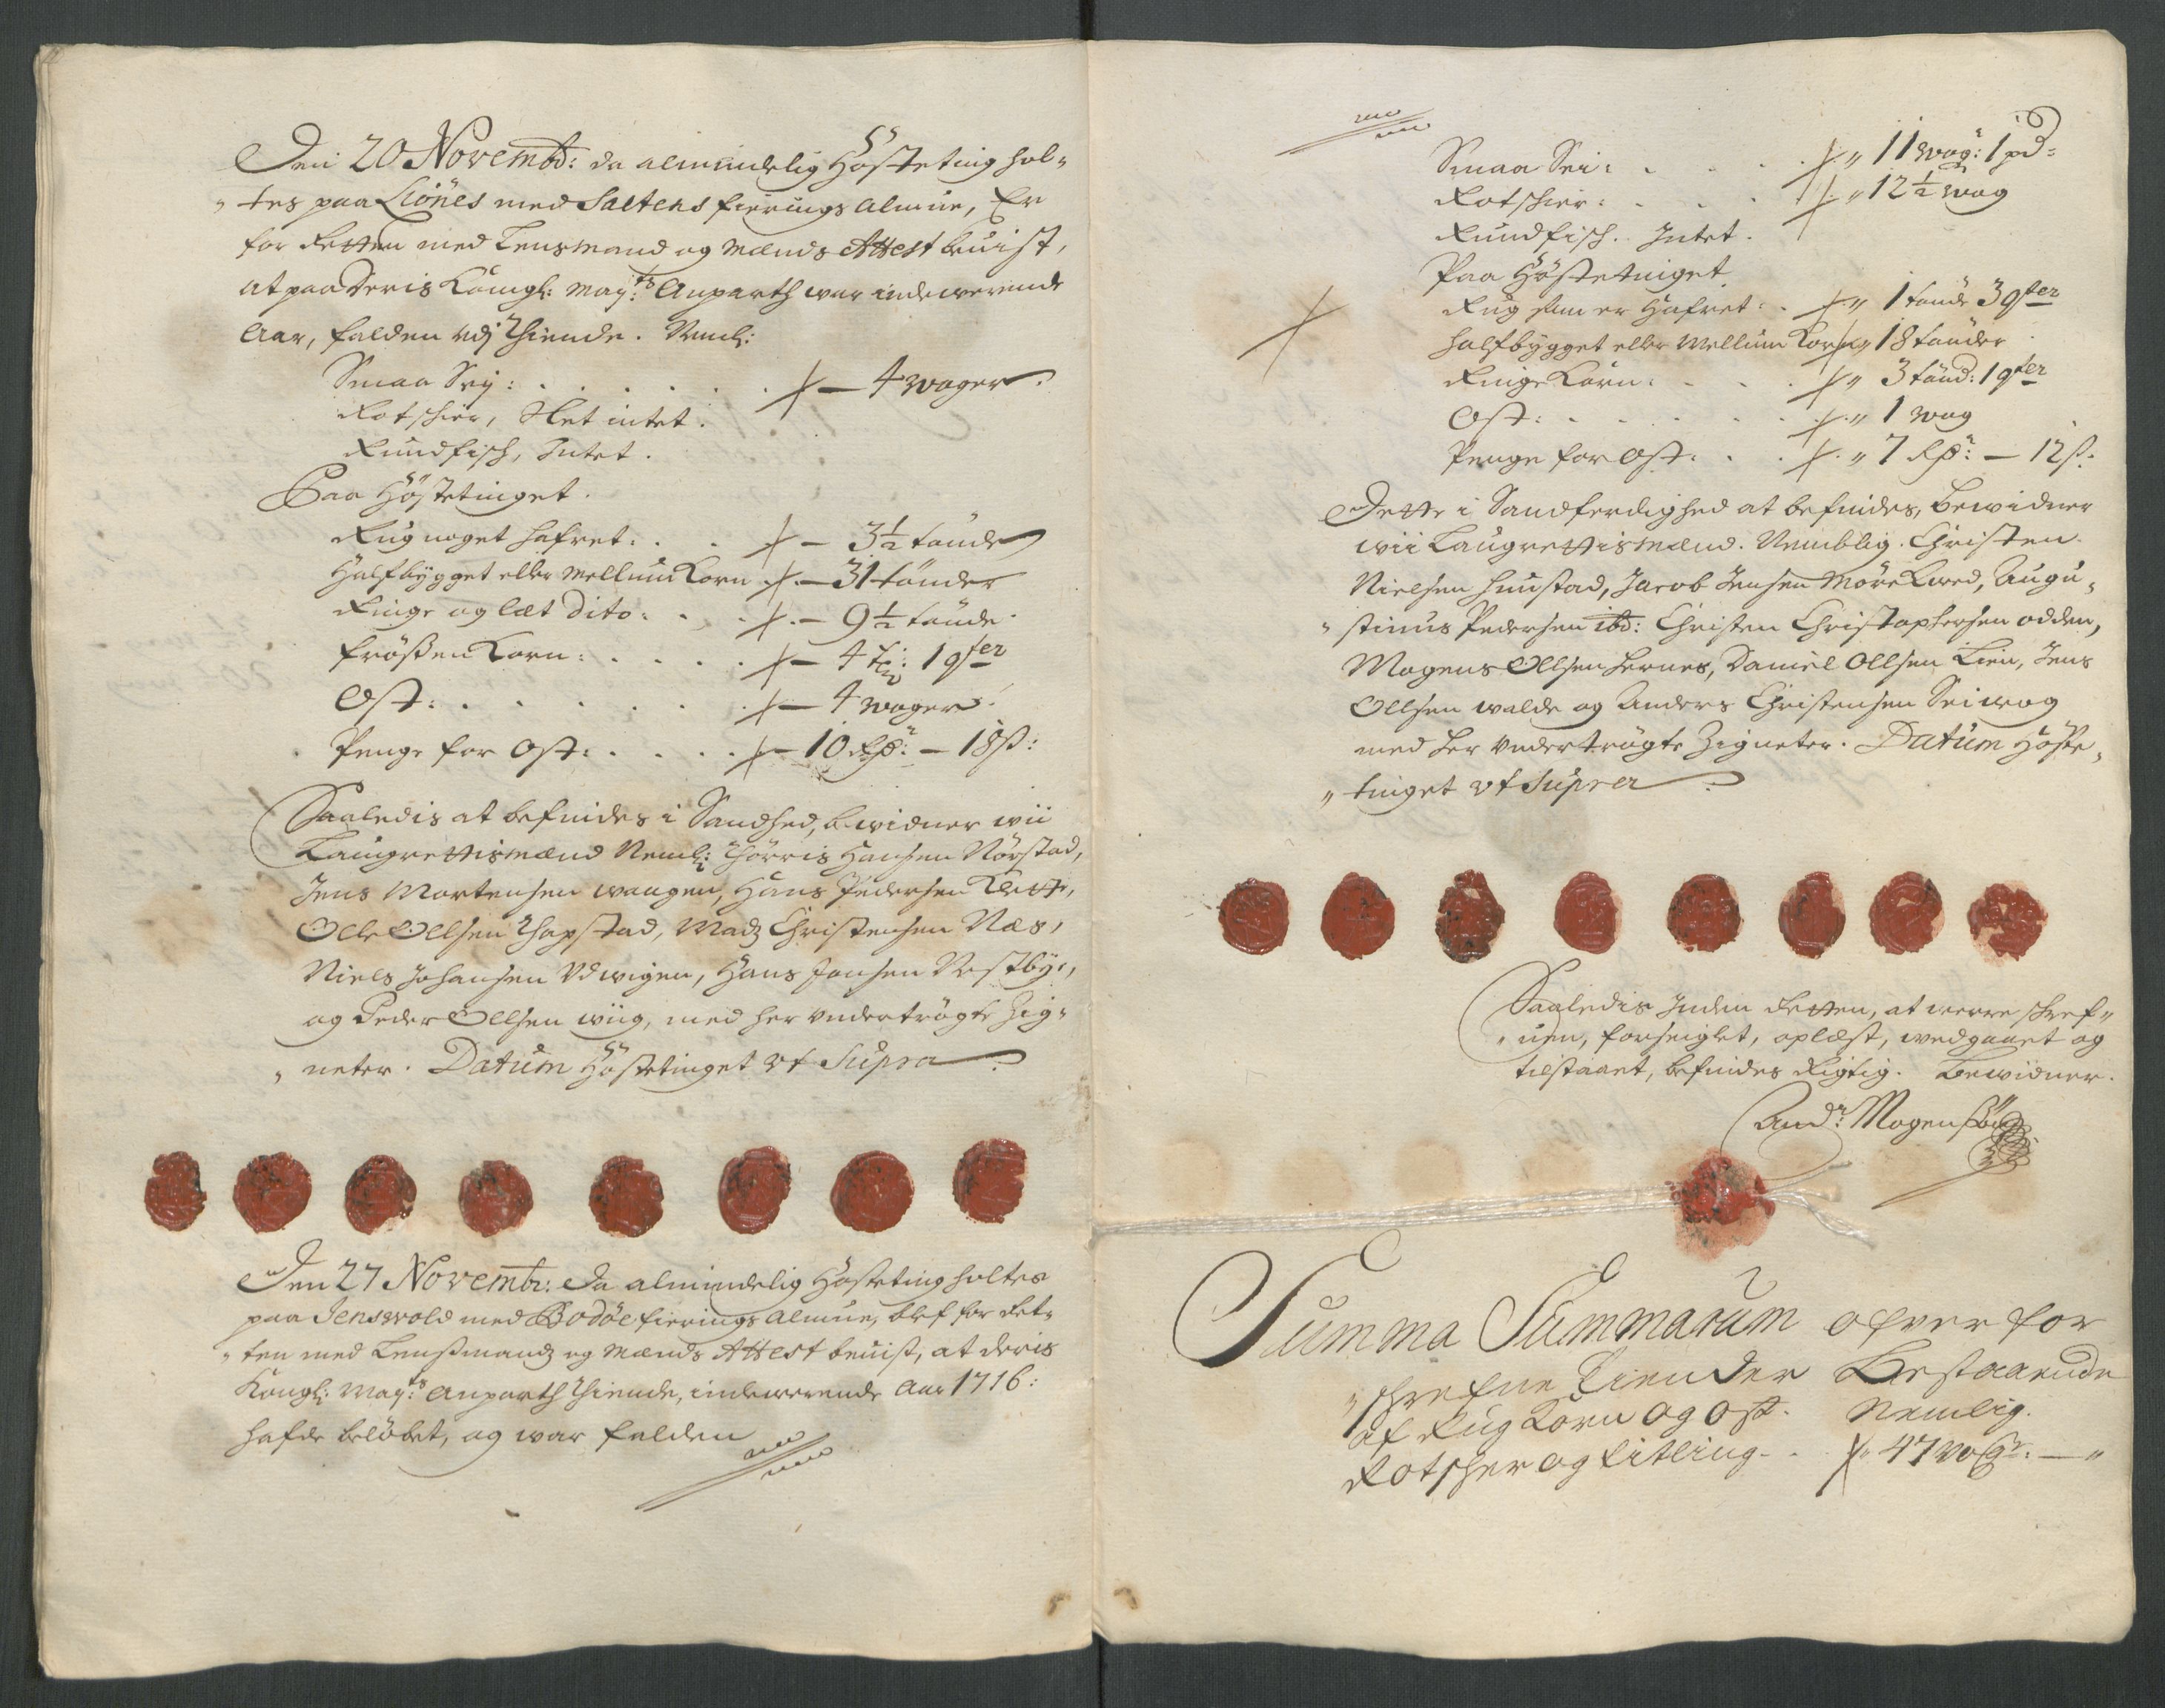 Den 20 Novembr: da almindelig Høsteting hol„
„tes paa Liönes med Saltens fierings Almue, Er
for Retten med Lensmand og Mænds Attest beuist,
at paa Deris Kongl: May:ts Anparth war indewerende
Aar, falden udj Thiende. Neml:
Smaa Seÿ: . . . . . . ⌿ — 4 woger.
Rotschier, Slet intet.
Rundfisch, Intet.
Paa Høstetinget.
Rug noget hafret: . . ⌿ — 3½ tønde
Halfbygget eller Mellum Korn ⌿ — 31 tønder
Ringe og læt Dito: . . ⌿ — 9½ tønde.
frossen Korn: . . . . ⌿ — 4 Tr: 1 qter
Ost: . . . . . . ⌿ — 4 woger.
Penge for Ost: . . . . ⌿ — 10 Rdr: — 18 ß:
Saaledis at befindes i Sandhed, bewidner wii
Laugrettismænd Neml: Thørris Hansen Nørstad,
Jens Mortensen waagen, Hans Pedersen Klett,
Olle Ollsen Thapstad, Madz Christensen Næs,
Niels Johansen Udwigen, Hans Jonsen Westbye,
og Peder Ollsen wiig, med her undertrøgte Zig„
„neter. Datum Høstetinget ut Supra
Den 27 Novembr: Da almindelig Høsteting holtes
paa Jenswold med Bodöe fierings Almue, blef for Ret„
„ten med Lensmandz og Mænds Attest beuist, at deris
Kongl: May:ts Anparth Thiende, indewerende Aar 1716:
hafde beløbet, og war falden
Smaa Sei: . . . ⌿ „ 11 wog: 1 pd:
Rotschier: . . . ⌿ „ 12½ wog
Rundfisch. Intet.
Paa Høstetinget.
Rug som er Hafret: . ⌿ „ 1 tønde 3 qter
halfbygget eller Mellum Korn ⌿ „ 18 tønder
Ringe Korn: . . . ⌿ „ 3 tønd: 1 qter
Ost: . . . . . . ⌿ „ 1 wog
Penge for Ost: . . ⌿ „ 7 Rdr: — 12 ß.
Dette i Sandferdighed at befindes, bewidner
wii Laugrettismænd. Nemblig. Christen
Nielsen Hunstad, Jacob Jensen Mörkwed, Augu„
„stinus Pedersen ibd: Christen Christophersen odden,
Mogens Ollsen Hernes, Daniel Ollsen Lien, Jens
Ollsen walde og Anders Christensen Seiwog
med her undertrøgte Zigneter. Datum Høste„
„tinget ut Supra
Saaledis Inden Retten, at werre schref„
„uen, forseiglet, oplæst, wedgaaet og
tilstaaet, befindes Rigtig. Bewidner.
And: Mogensøn
Summa Summarum ofver for
„schrefne Tiender Bestaaende
af Rug Korn og Ost. Nemlig.
Rotscher og Titling. . ⌿ „ 47 Wogr: — „